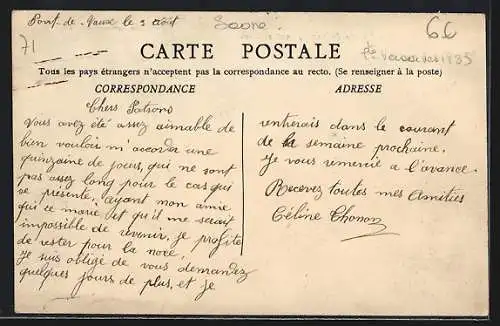 Pont-de-Vaux le 2 Août
Saone.
6.6
71
CARTE POSTALE
Tous les pays étrangers n'acceptent pas la correspondance au recto. (Se renseigner à la poste)
CORRESPONDANCE
Chers Patrons
Vous avez été assez aimable de
bien vouloir m'accorder une
quinzaine de jours, qui ne sont
pas assez long pour le cas qui
se présente, ayant mon amie
qui ce marie et qu'il me serait
impossible de revenir, je profite
de rester pour la noce.
Je suis obligé de vous demandez
quelques jours de plus, et je
ADRESSE
rentierais dans le courant
de la semaine prochaine.
Je vous remercie a l'avance.
Recevez toutes mes Amitiés
Céline Thonon